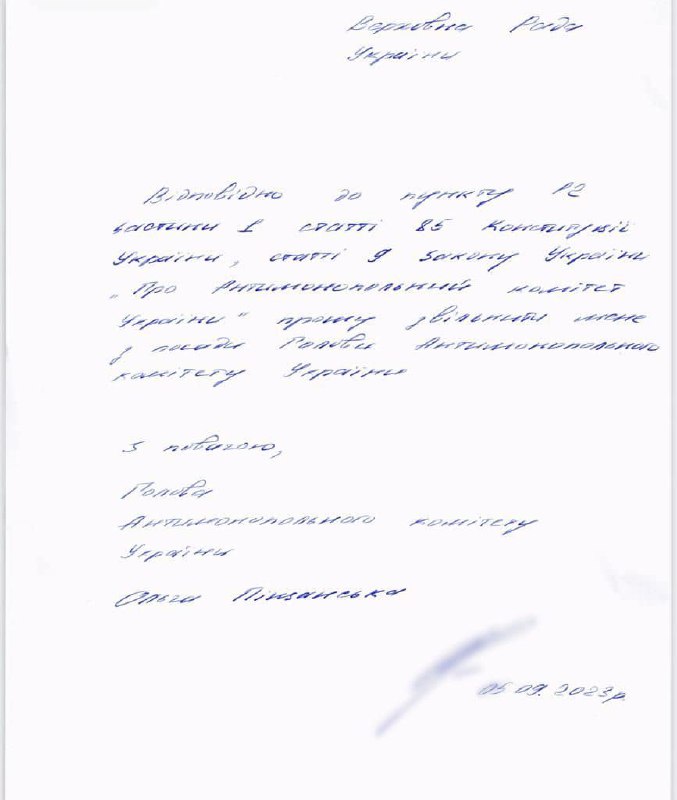 Верховна Рада
України
Відповідно до пункту 12
частини 1 статті 85 Конституції
України, статті 9 закону України
„Про Антимонопольний комітет
України" прошу звільнити мене
з посади Голови Антимонопольного
комітету України
З повагою,
Голова
Антимонопольного комітету
України
Ольга Піщанська
05.09.2023р.